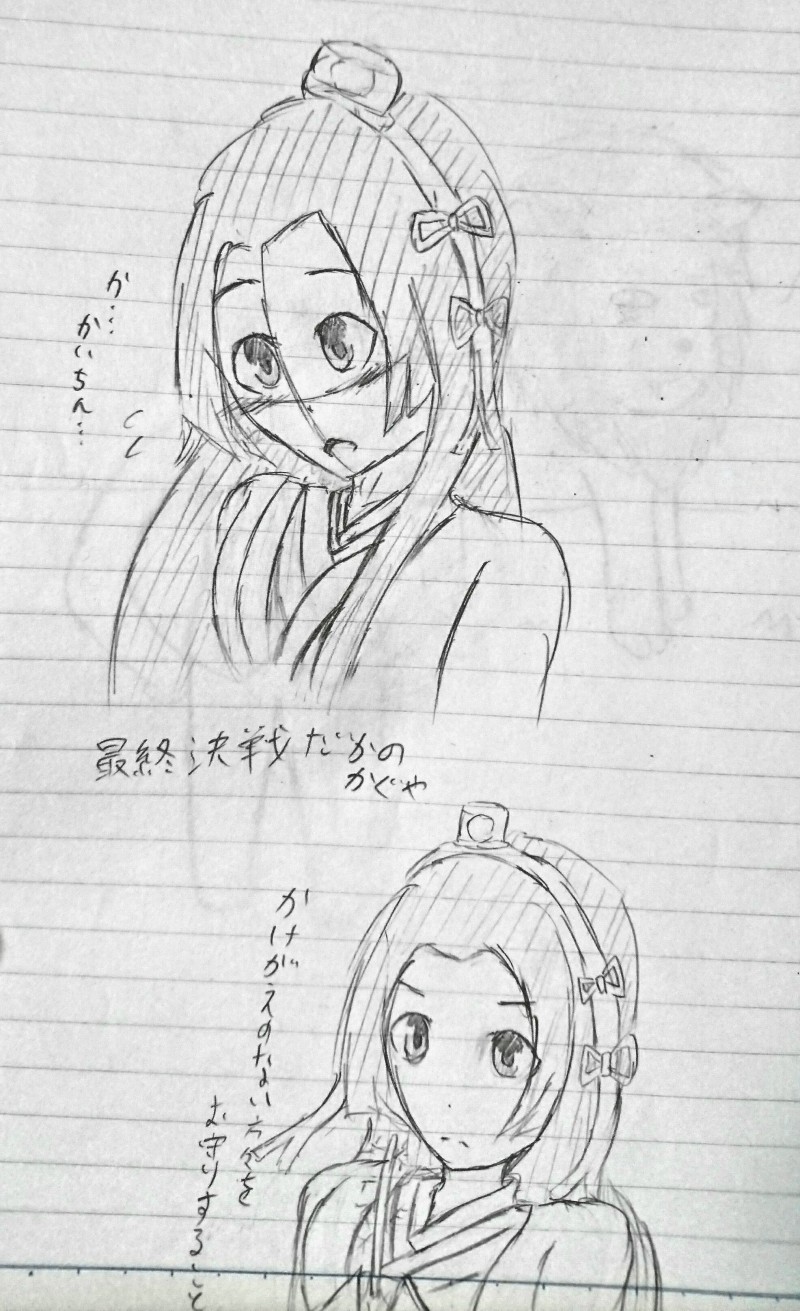 か…
かいちん…
最終決戦だかの
かぐや
かけがえのない方々を
お守りすること